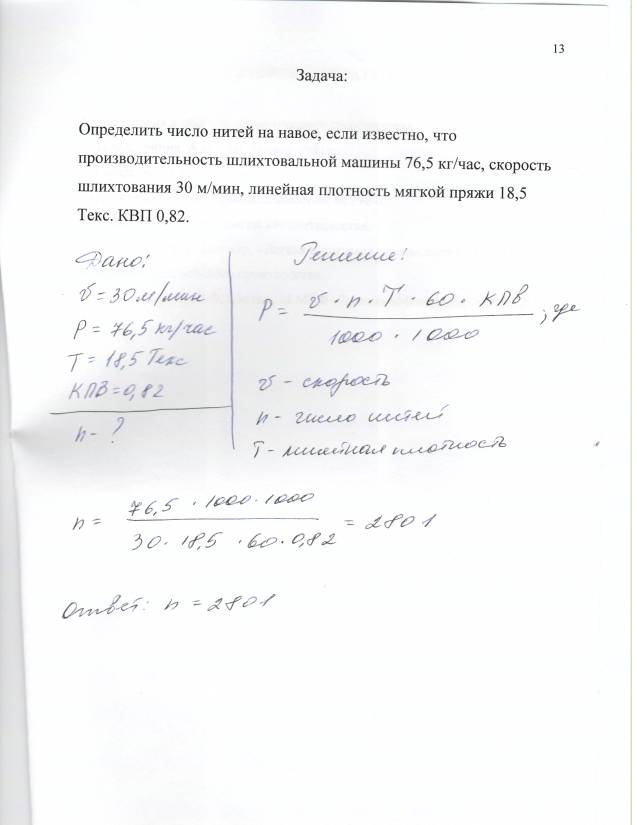 13
Задача:
Определить число нитей на навое, если известно, что
производительность шлихтовальной машины 76,5 кг/час, скорость
шлихтования 30 м/мин, линейная плотность мягкой пряжи 18,5
Текс. КВП 0,82.
Дано:
v = 30 м/мин
P = 76,5 кг/час
T = 18,5 Текс
КПВ = 0,82
n - ?
Решение!
P = v · n · T · 60 · КПВ / 1000 · 1000 ; где
v - скорость
n - число нитей
T - линейная плотность
n = 76,5 · 1000 · 1000 / 30 · 18,5 · 60 · 0,82 = 2801
Ответ: n = 2801